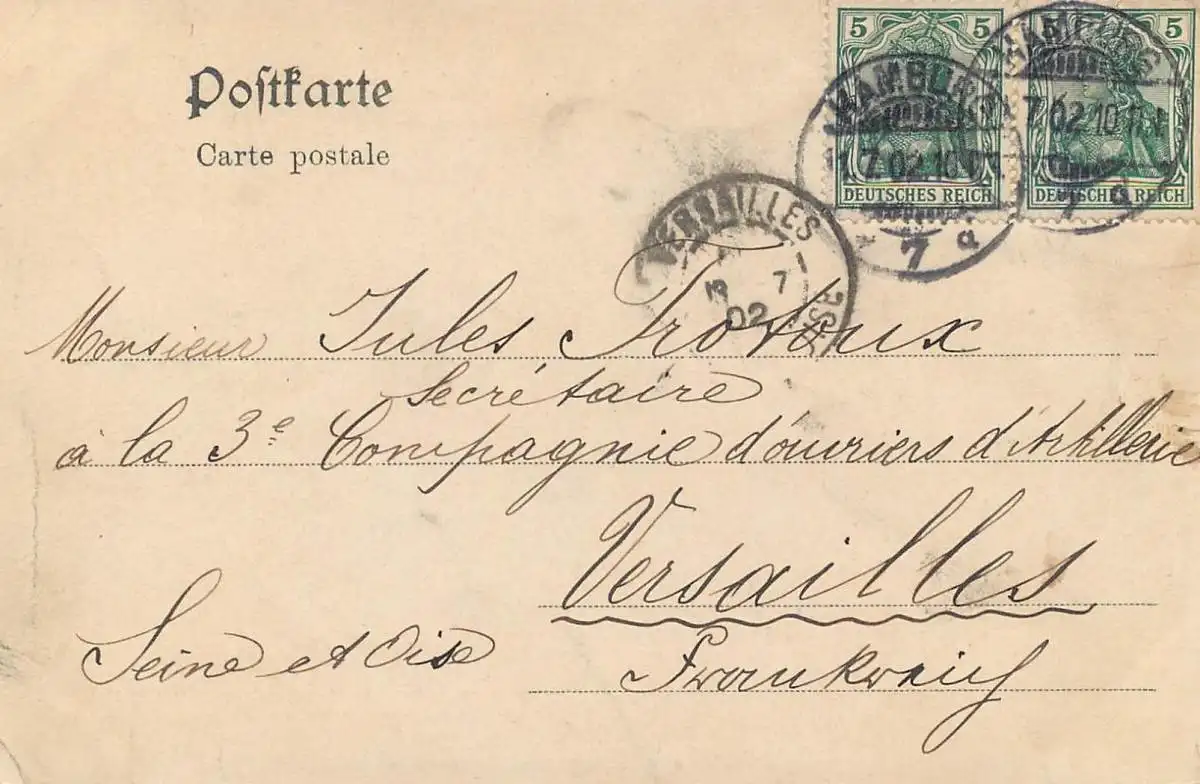 Postkarte
Carte postale
5 5
5 5
DEUTSCHES REICH
DEUTSCHES REICH
HAMBURG
7.02.10
7 a
HAMBURG
7.02.10
7 a
VERSAILLES
7
02
Monsieur Jules
Secrétaire
à la 3e Compagnie d'ouvriers d'Artillerie
Versailles
Seine et Oise
Frankreich